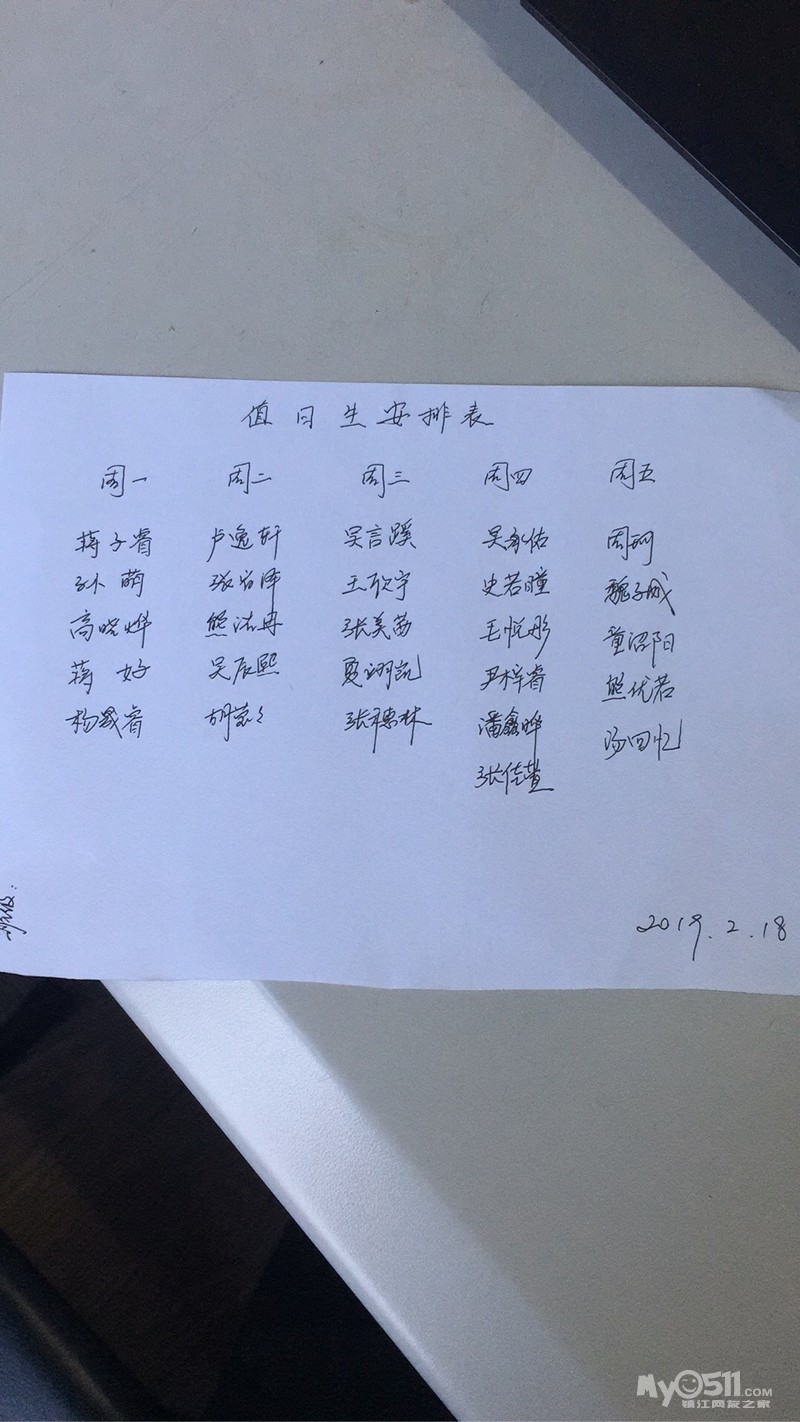 值日生安排表
周一 周二 周三 周四 周五
蒋子睿 卢逸轩 吴言蹊 吴承佑 周珂
孙萌 王歆宇 史若瞳 魏子成
高晓烨 熊洁冉 张美茜 毛悦彤 童沼阳
蒋好 吴辰熙 夏翊凯 尹梓睿 熊优若
杨晟睿 张穗林 潘鑫晔 汤回忆
张佳萱
2019.2.18
My0511.com
镇江网友之家